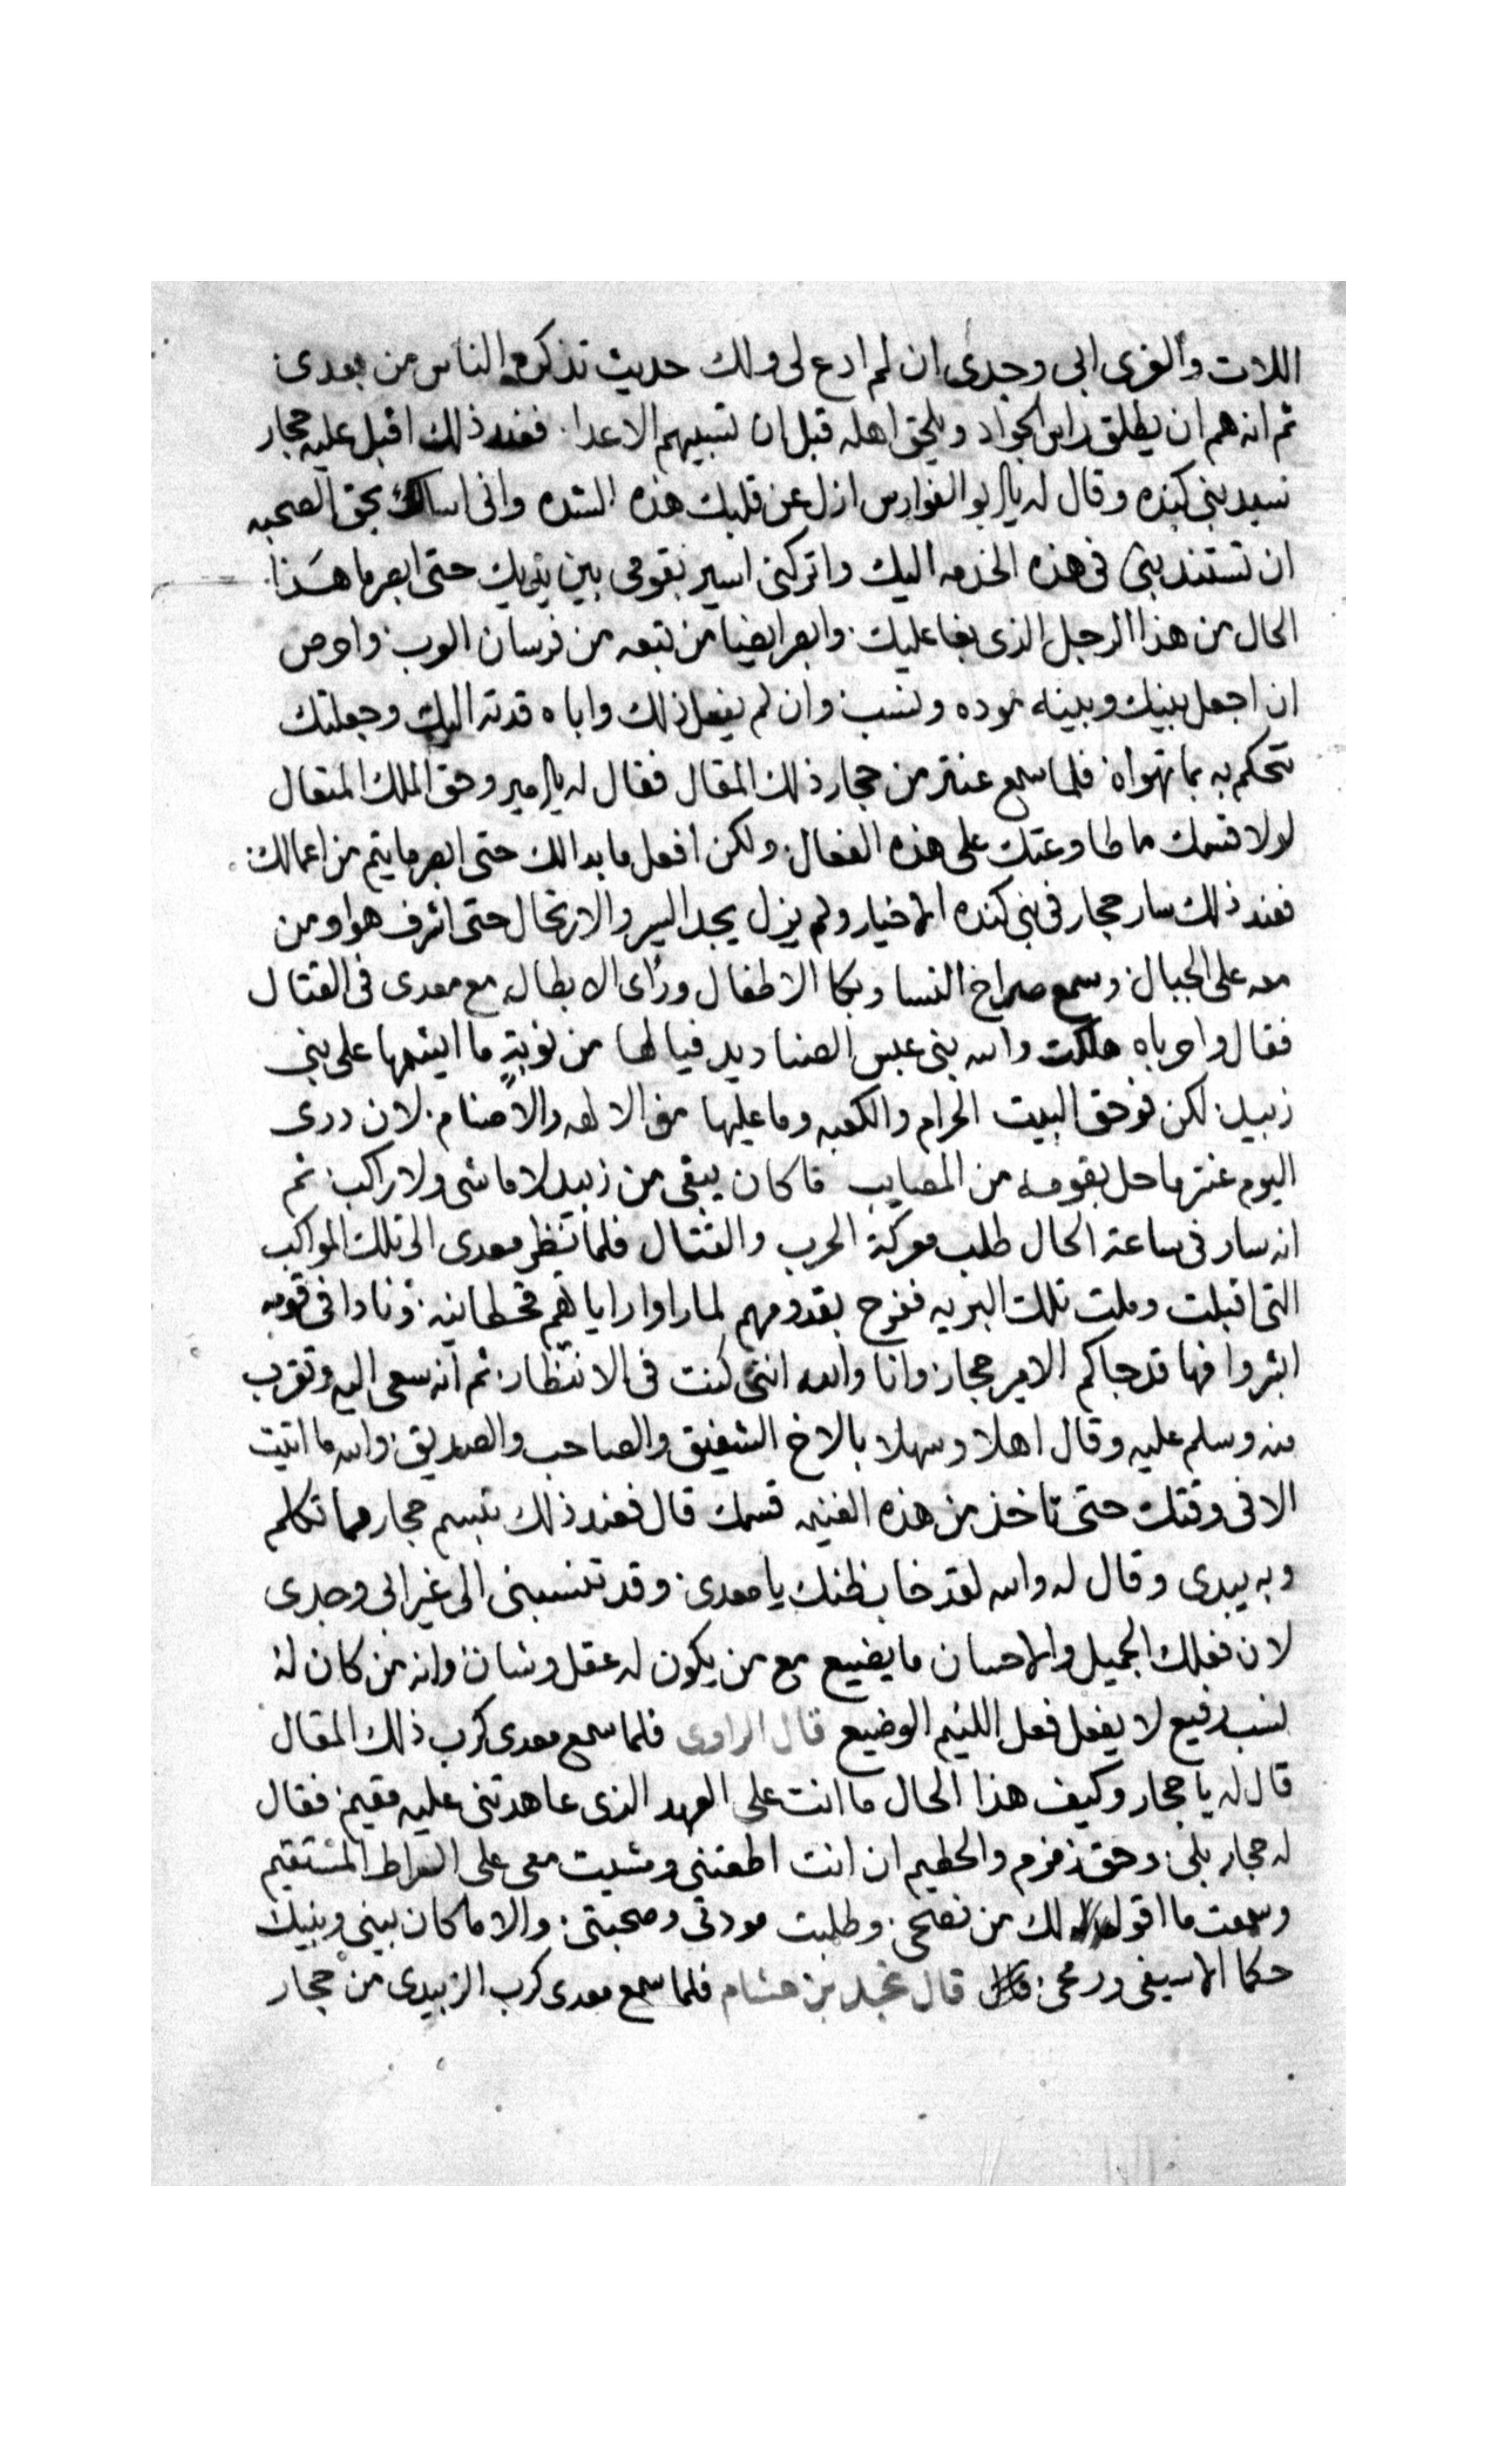 اللات والعزى ابى وجدى ان لم ادع لى ولك حديث تذكره الناس من بعدى
ثم انه هم ان يطلق راس الجواد ويلحق اهله قبل ان تسبيهم الاعدا فعند ذلك اقبل عليه حجار
سيد بنى كنده وقال له يابو الفوارس ازل عن قلبك هذه الشده وانى اسالك بحق الصحبه
ان تستندبنى فى هذه الخدمه اليك واتركنى اسير بقومى بين يديك حتى ابصر ما هذا
الحال من هذا الرجل الذى بغا عليك وابصر ايضيا من تبعه من فرسان العرب واحرص
ان اجعل بينك وبينه موده ونسب وان لم يفعل ذلك واباه قدته اليك وجعلتك
تتحكم به بما تهواه فلما سمع عنتر من حجار ذلك المقال فقال له يالامير وحق الملك المتعال
لولا قسمك ما طاوعتك على هذه الفعال ولكن افعل ما بدالك حتى ابصر ما يتم من اعمالك
فعند ذلك سار حجار فى بنى كنده الاخيار ولم يزل يجد السير والارتحال حتى اشرف هوا ومن
معه على الجبال وسمع صراخ النسا وبكا الاطفال وراى الابطال مع معدى فى القتال
فقال واحرباه هلكت والله بنى عبس الصناديد فيالها من نوبةٍ ما ايشمها على بنى
زبيد لكن فوحق البيت الحرام والكعبه وما عليها من الالهه والاصنام لان درى
اليوم عنتر ما حل بقومه من المصايب فاكان يبقى من زبيد لا ماشى ولا راكب ثم
انه سار فى ساعته الحال طلب معركة الحرب والقتال فلما نظر معدى الى تلك المواكب
التى اقبلت وملت تلك البريه ففرح بقدومهم لما راوا راياهم قحطانيه ونادا فى قومه
ابشروا فها قد جاكم الامير حجار وانا والله اننى كنت فى الانتظار ثم انه سعى اليه وتقرب
منه وسلم عليه وقال اهلا وسهلا بالاخ الشفيق والصاحب والصديق والله ما اتيت
الا فى وقتك حتى تاخذ من هذه الغنيمه قسمك قال فعند ذلك تبسم حجار مما تكلم
وبه يبدى وقال له والله لقد خاب ظنك يا معدى وقد تنسبنى الى غير ابى وجدى
لان فعلك الجميل والاحسان ما يضيع مع من يكون له عقل وشان وانه من كان له
نسب رفيع لا يفعل فعل اللئيم الوضيع قال الراوى فلما سمع معدى كرب ذلك المقال
قال له يا حجار وكيف هذا الحال ما انت على العهد الذى عاهدتنى عليه مقيم فقال
له حجار بلى وحق زمزم والحطيم ان انت اطعتنى ومشيت معى على الصراط المستقيم
وسمعت ما اقوله لك من نصحى وطلبت مودتى وصحبتى والا ما كان بينى وبينك
حكما الا سيفى ورمحى قال نجد بن هشام فلما سمع معدى كرب الزبيدى من حجار